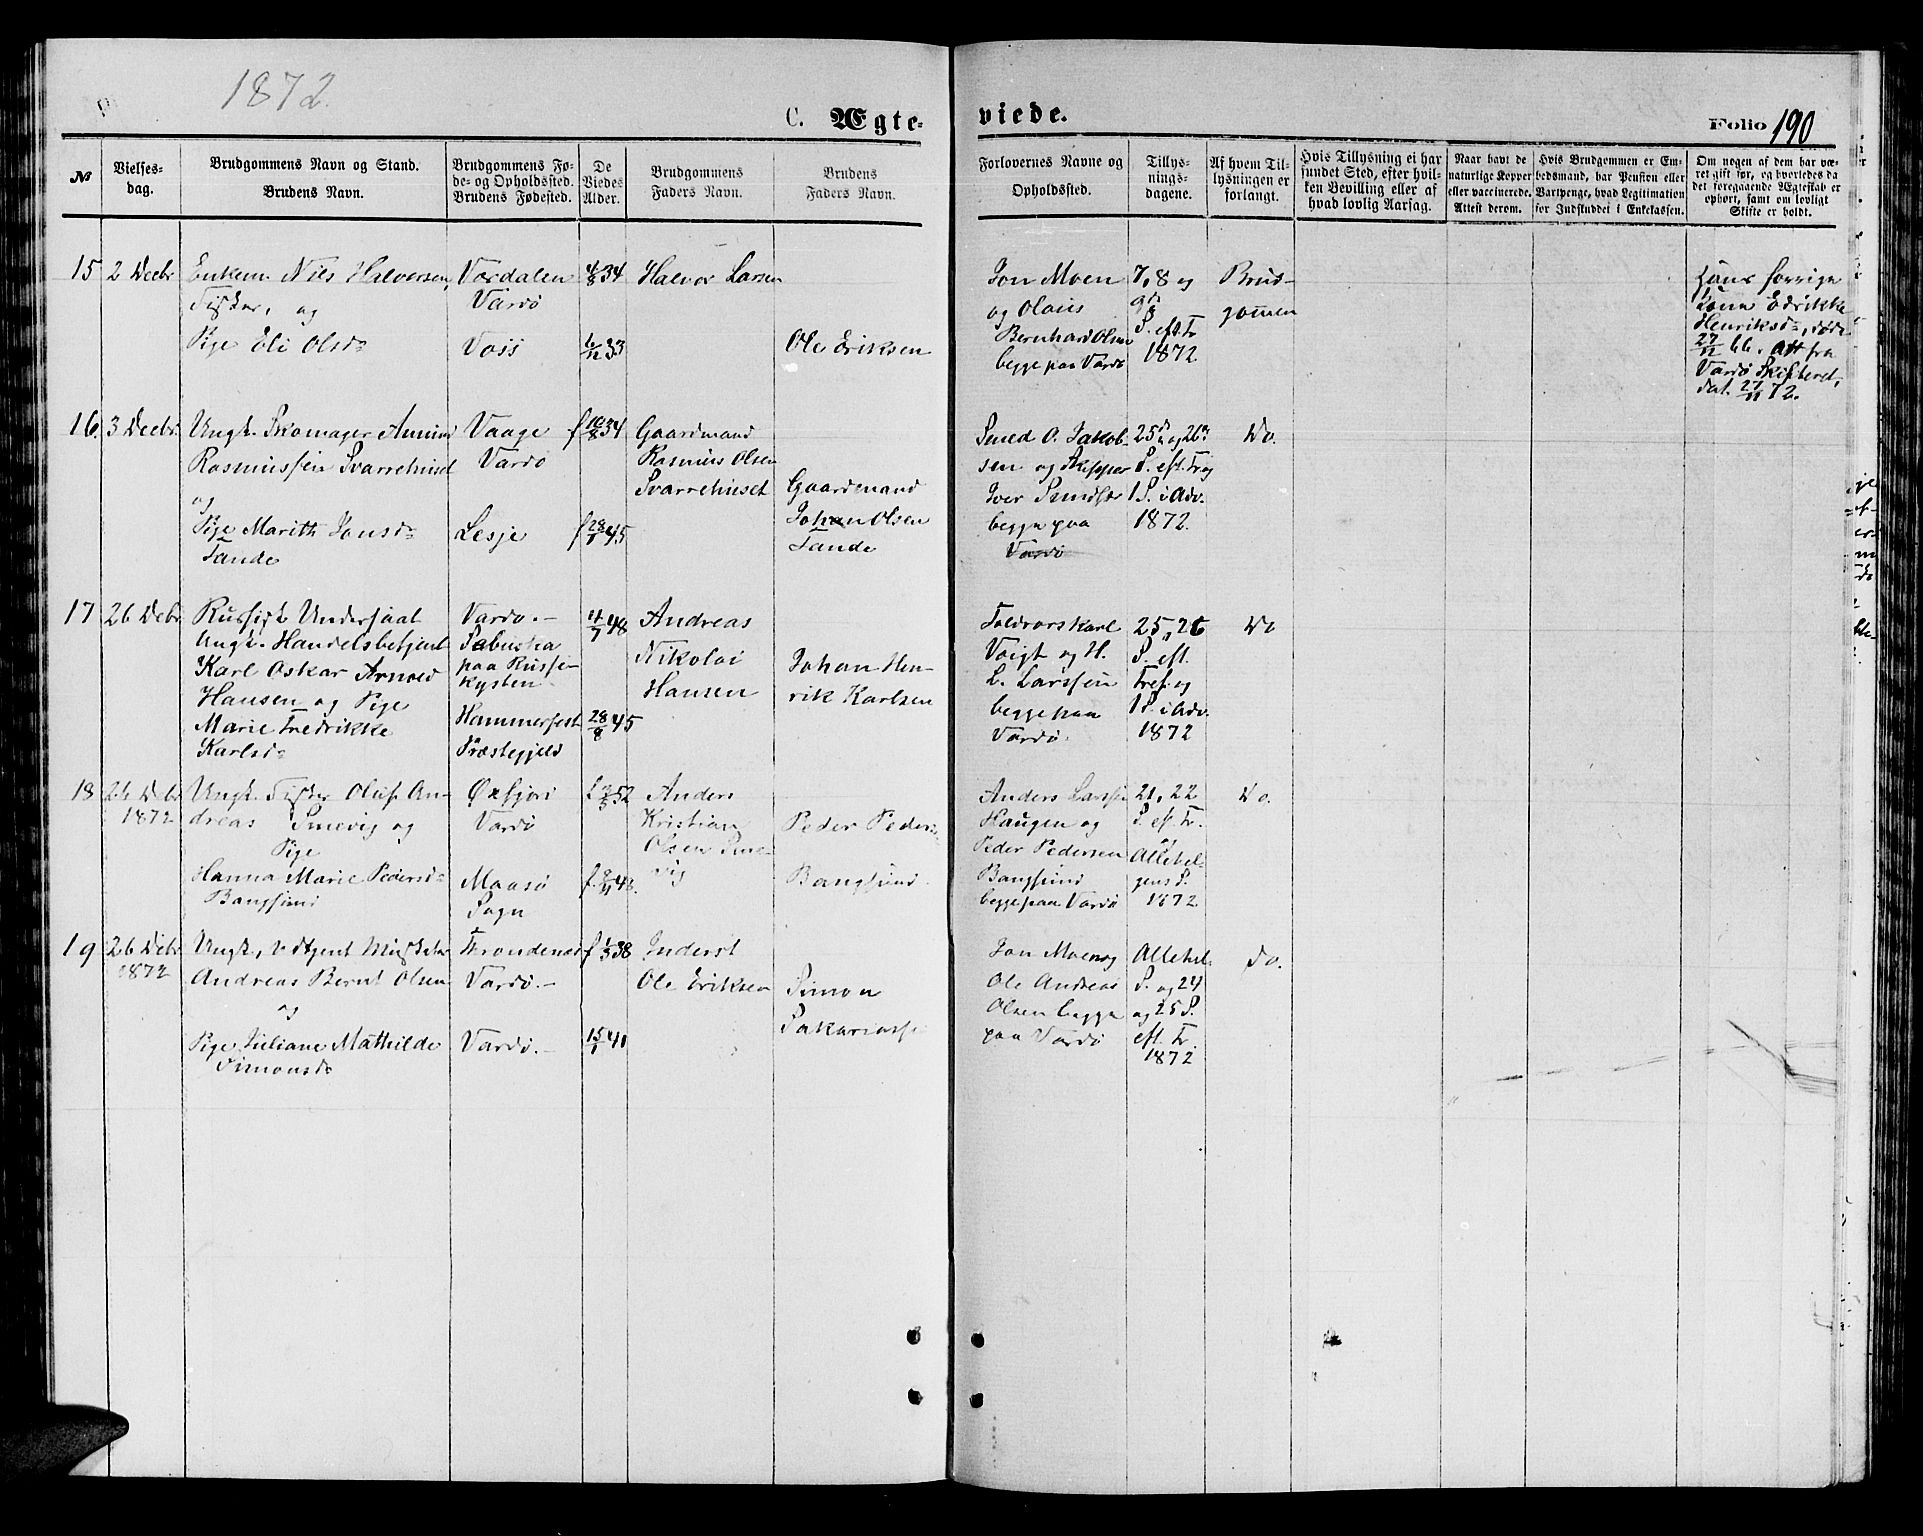 1872.
C. Ægte-
viede.
Folio 190
№
Vielses-
dag.
Brudgommens Navn og Stand.
Brudens Navn.
Brudgommens Fø-
de- og Opholdssted.
Brudens Fødested.
De
Viedes
Alder.
Brudgommens
Faders Navn.
Brudens
Faders Navn.
Forlovernes Navne og
Opholdssted.
Tillys-
nings-
dagene.
Af hvem Til-
lysningen er
forlangt.
Hvis Tillysning ei har
fundet Sted, efter hvil-
ken Bevilling eller af
hvad lovlig Aarsag.
Naar havt de
naturlige Kopper
eller vaccinerede.
Attest derom.
Hvis Brudgommen er Em-
bedsmand, har Pension eller
Vartpenge, hvad Legitimation
for Indskuddet i Enkekassen.
Om nogen af dem har væ-
ret gift før, og hvorledes da
det foregaaende Ægteskab er
ophørt, samt om lovligt
Skifte er holdt.
15
2 Decbr
Enkem. Nils Halvorsen,
Fisker, og
Pige Eli Olsd=
Værdalen
Vardö
Voss
4/8 34
6/12 33
Halvor Larsen
Ole Eriksen
Jon Moen
og Olaus
Bernhard Olsen
begge paa Vardö
7, 8 og
9de
S. eft. Tr
1872
Brud-
gommen
Hans forrige
Kone Edrikke
Henriksd=, döde
27/12 66. Att fra
Vardö Skifteret,
dat. 27/11 72.
16.
3 Decbr.
Ungk. Skomager Amund
Rasmussen Svarrehuset
og
Pige Marith Jonsd=
Tande
Vaage
Vardö
Lesje
f 10/8 34
f 28/1 45
Gaardmand
Rasmus Olsen
Svarrehuset
Gaardmand
Johan Olsen
Tande
Smed O. Jakob-
sen og Skipper
Iver
begge paa
Vardö
25de og 26n
S. eft. Tr og
1 S. i Adv.
1872.
Do.
17
26 Debr.
Russisk Undersaat
Ungk. Handelsbetjent
Karl Oskar Arnold
Hansen og Pige
Marie Fredrikke
Karlsd=
Vardö.-
paa Russe-
kysten
Hammerfest
Præstegjeld
11/7 48
28/8 45
Andreas
Nikolai
Hansen
Johan Hen-
rik Karlsen
Toldrorskarl
Voigt og H.
L. Larssen
begge paa
Vardö.
25, 26
S. eft.
Tref. og
1 S. i Adv.
1872
Do
18
26 Deb
1872
Ungk. Fisker Oluf An-
dreas Smevig og
Pige
Hanna Marie Pedersd=
Bangsund
Öxfjord
Vardö
Maasö
Sogn
52
f. 8/11 48.
Anders
Kristian
Olsen Sme-
vig
Peder Peders
Bangsund
Anders Larssen
Haugen og
Peder Pedersen
Bangsund
begge paa Vardö
21, 22
S. ef. Tr.
Allehel-
gens S.
1872
Do.
19
26 Debr
1872
Ungk., Vedtjent Musketer
Andreas Bernt Olsen
og
Pige Juliane Mathilde
Simonsd=
Throndenæs
Vardö.-
Vardö.-
f 1/3 38
15/1 41
Inderst
Ole Eriksen
Simon
Sakariass
Jon Moen og
Ole Andreas
Olsen begge
paa Vardö
Allehel.
S. og 24
og 25 S.
eft. Tr.
1872
Do.